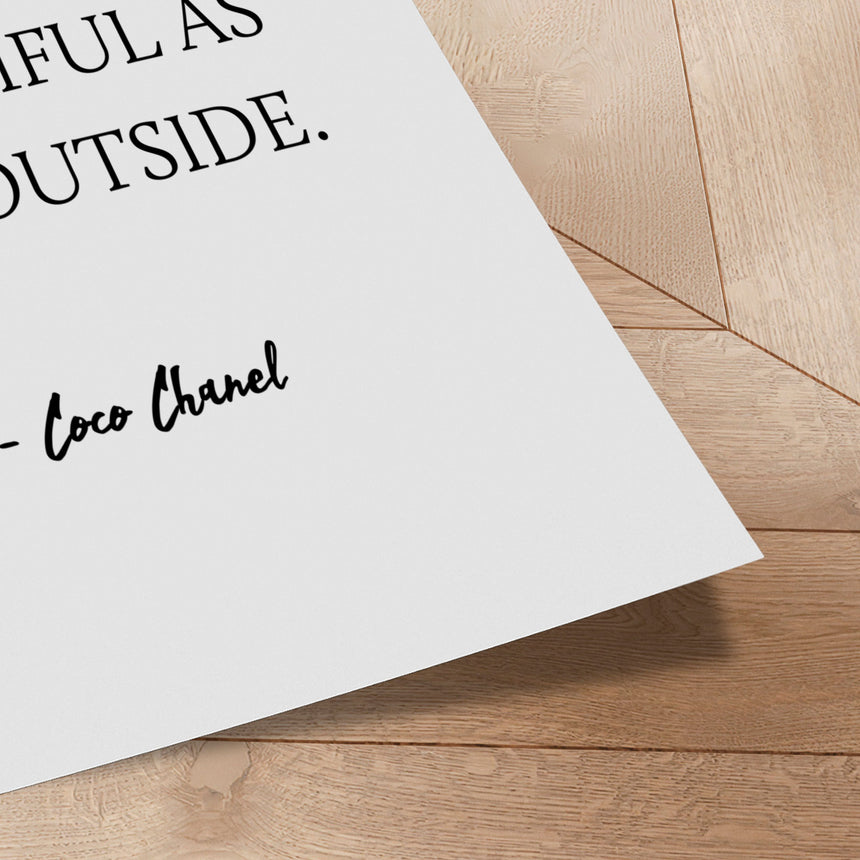 IFUL AS
OUTSIDE.
- Coco Chanel